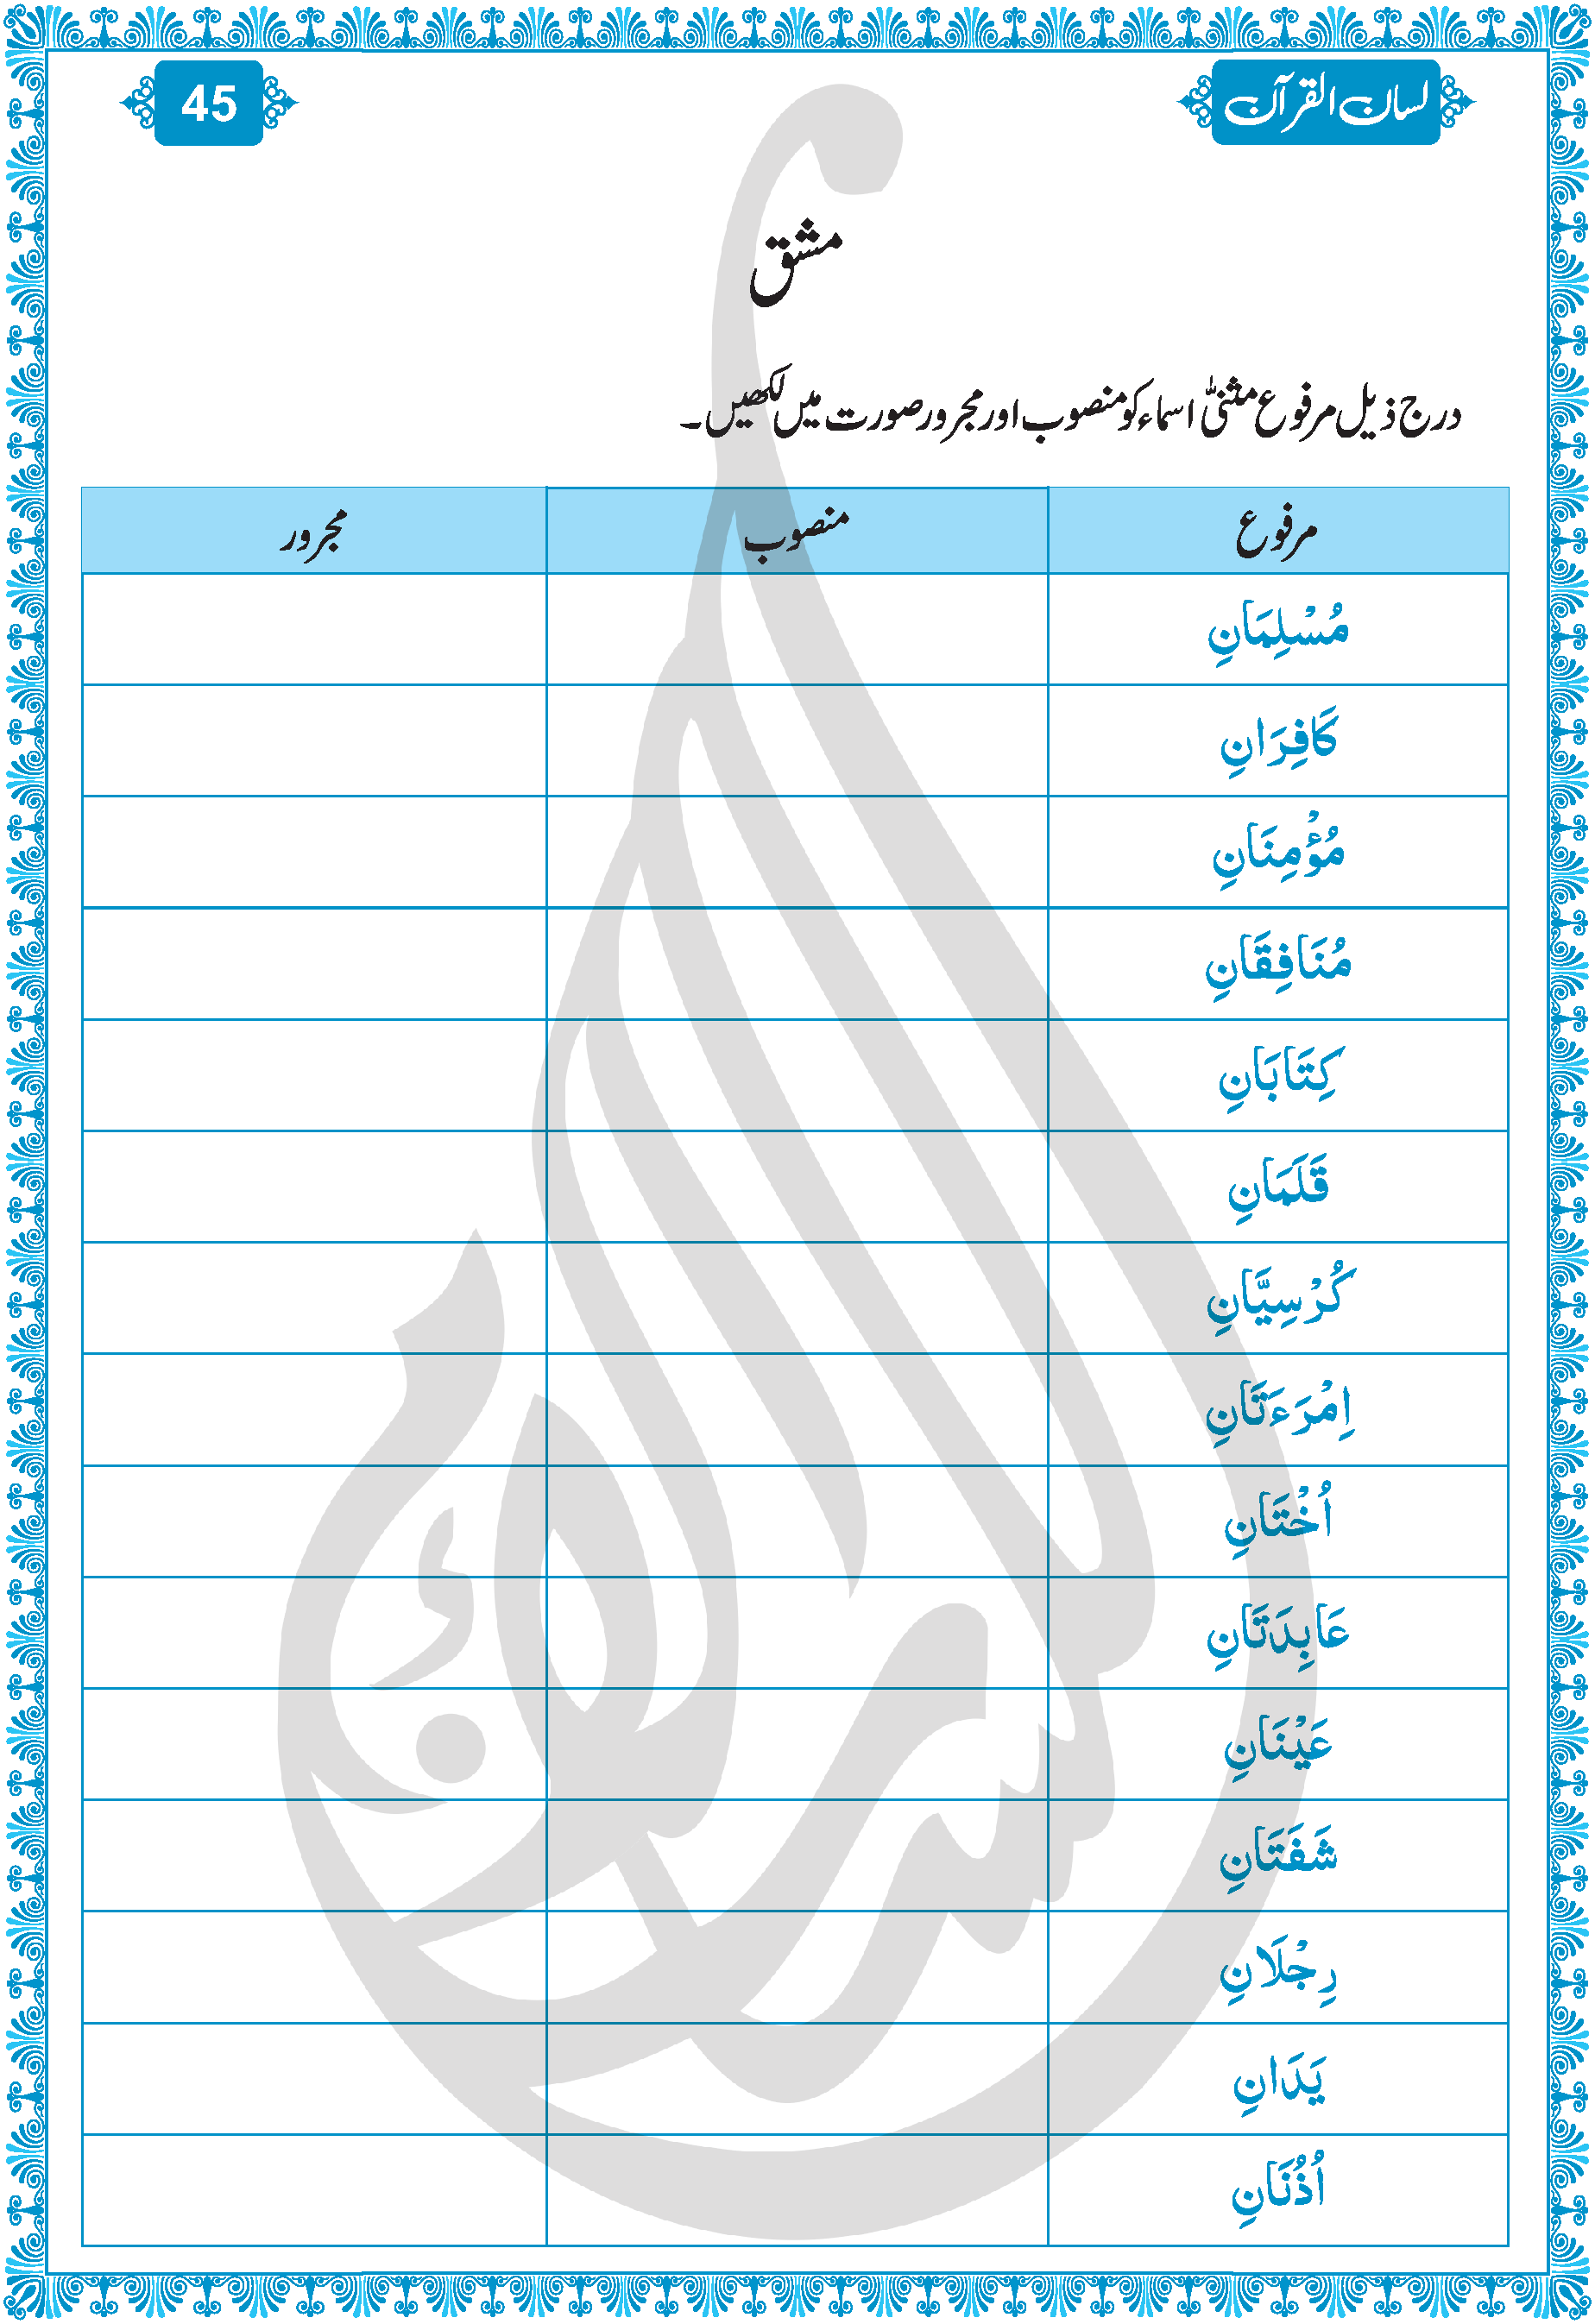 لسان القرآن
45
مشق
درج ذیل مرفوع مثنیّٰ اسماء کو منصوب اور مجرور صورت میں لکھیں۔
مرفوع منصوب مجرور
مُسْلِمَانِ
كَافِرَانِ
مُؤْمِنَانِ
مُنَافِقَانِ
كِتَابَانِ
قَلَمَانِ
كُرْسِيَّانِ
اِمْرَءَتَانِ
اُخْتَانِ
عَابِدَتَانِ
عَيْنَانِ
شَفَتَانِ
رِجْلَانِ
يَدَانِ
اُذُنَانِ